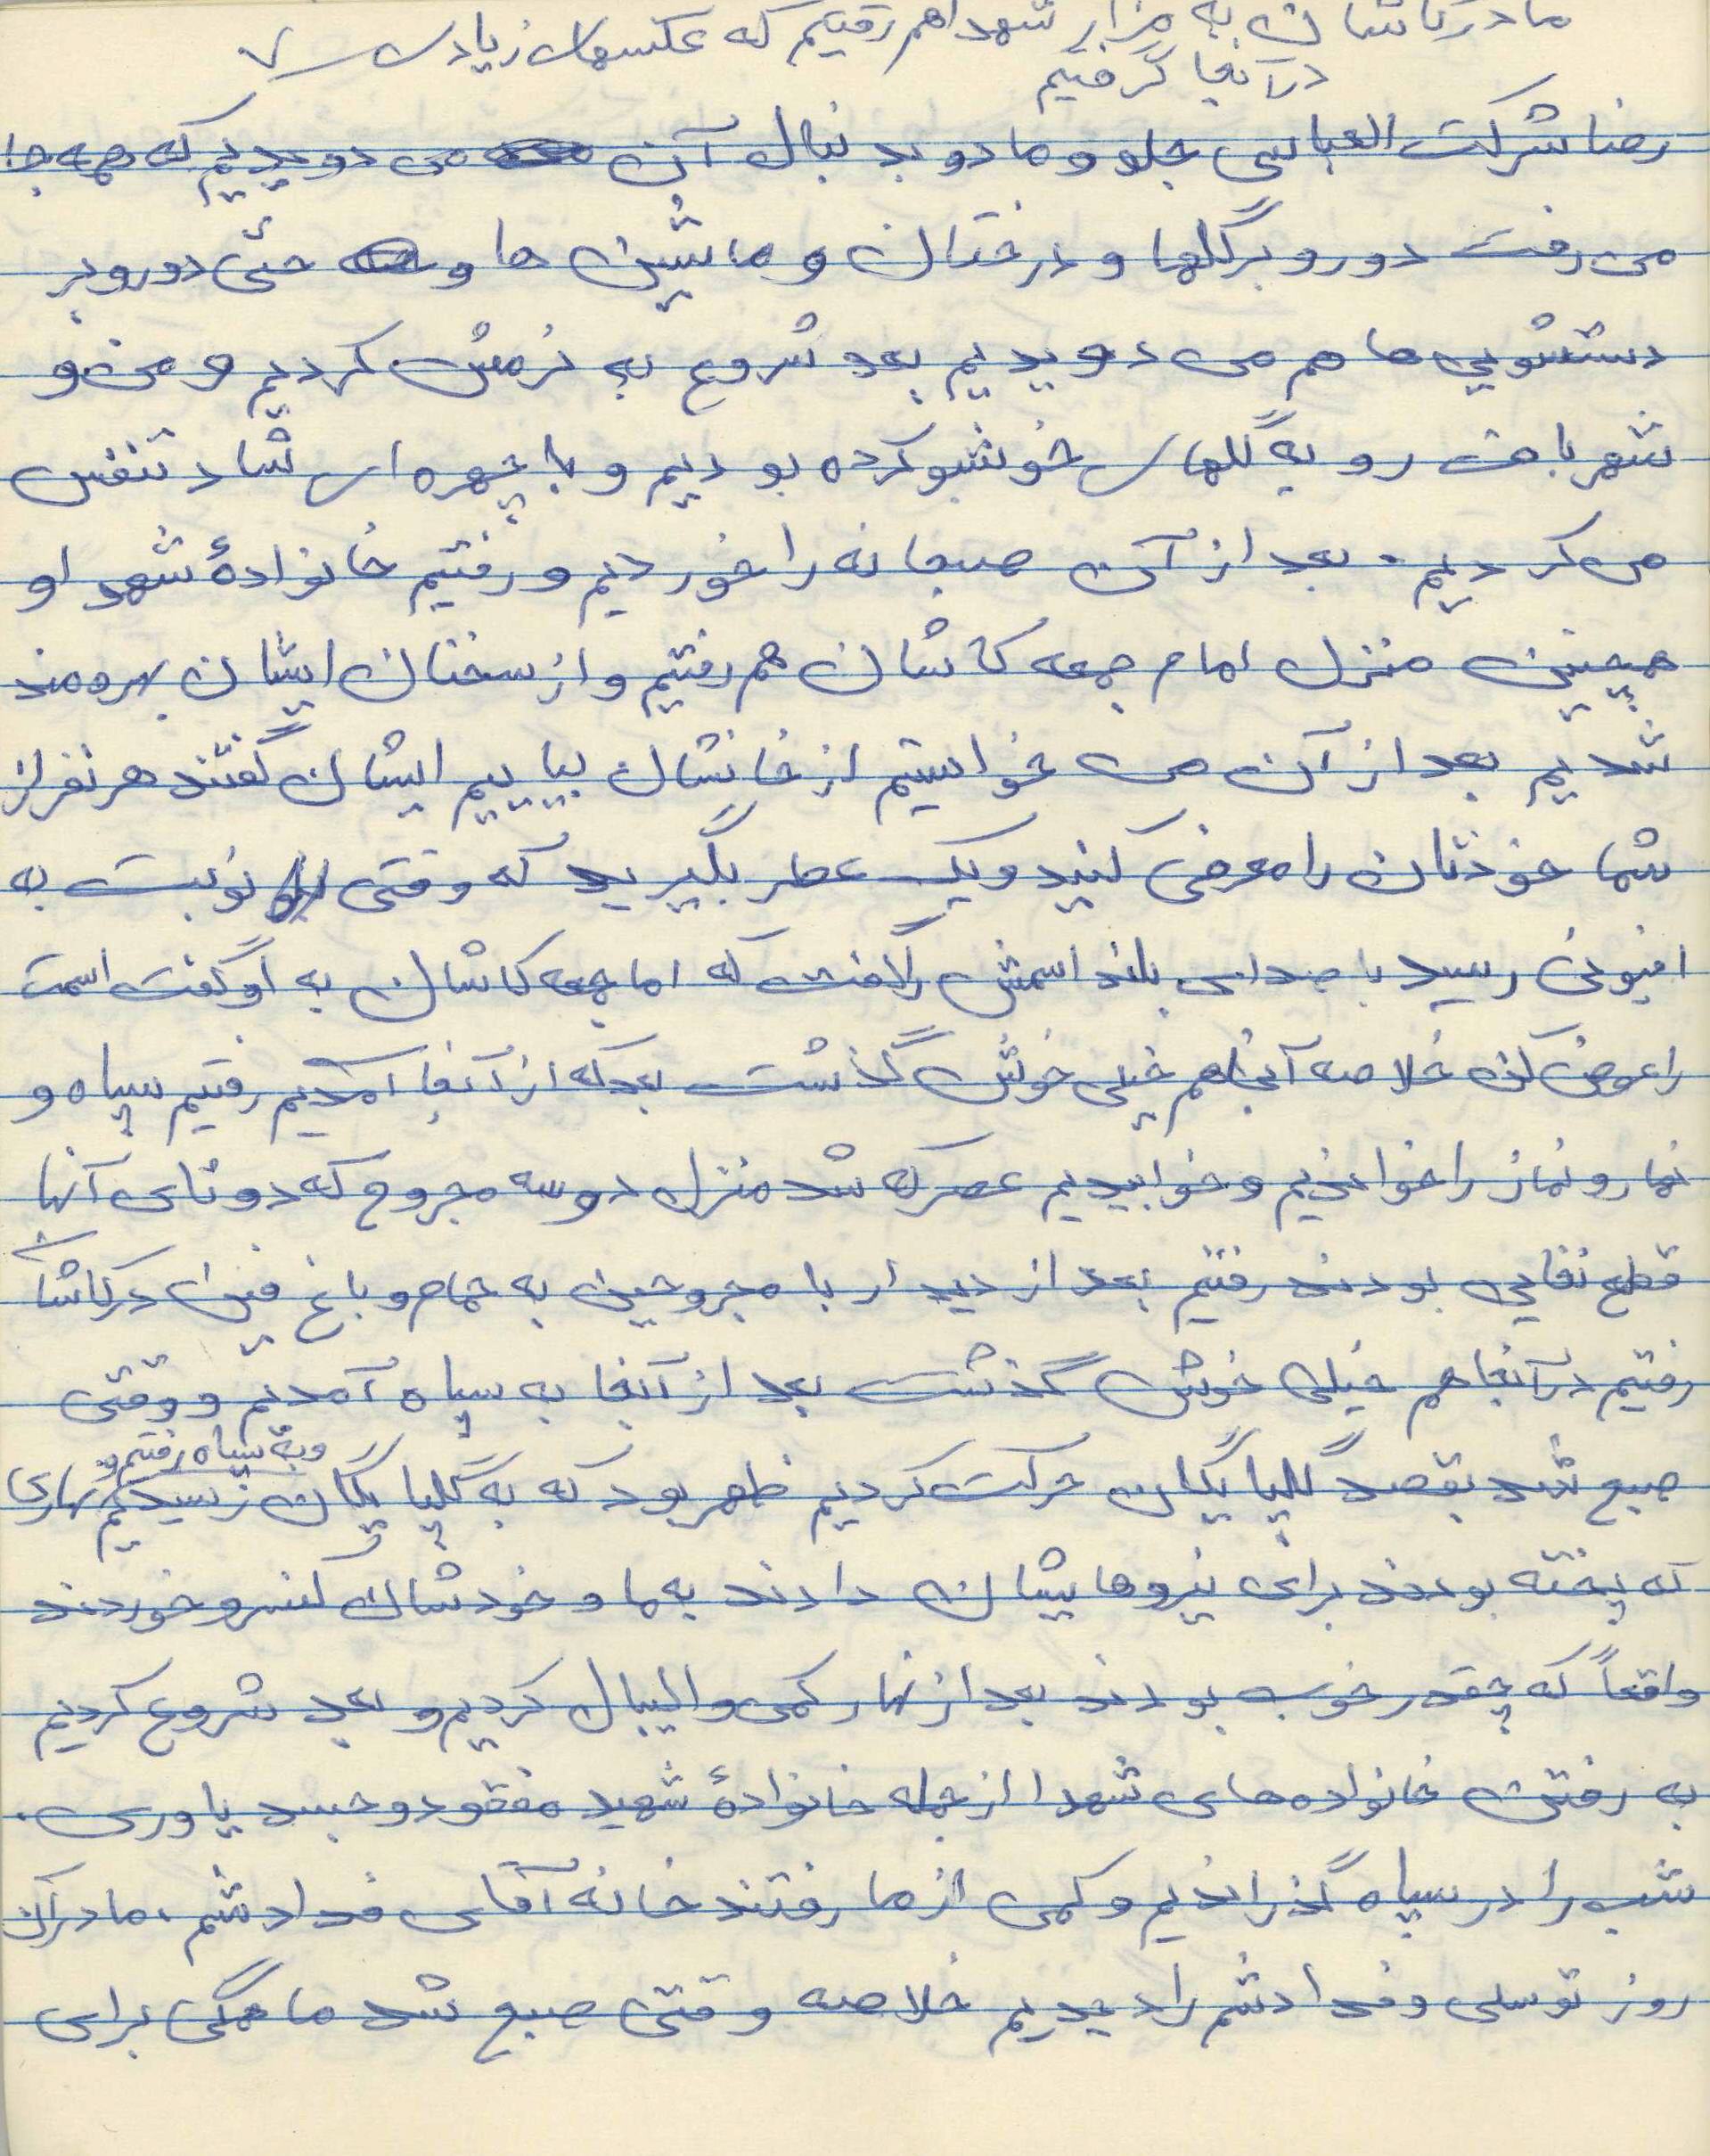 ما در کاشان به مزار شهدا هم رفتیم که عکسهای زیادی ۷
در آنجا گرفتیم
رضا شرکت العباسی جلو و ما دو بد نبال آن می دویدیم که همه جا
می رفت دور و بر گلها و درختان و ماشین ها و حتی دور و بر
دستشویی ها هم می دویدیم بعد شروع به نرمش کردیم و من و
شهر بافت رو به گلهای خوشبو کرده بودیم و با چهره ای شاد تنفس
می کردیم. بعد از آن صبحانه را خوردیم و رفتیم خانوادهٔ شهدا و
همچنین منزل امام جمعه کاشان هم رفتیم و از سخنان ایشان بهره مند
شدیم بعد از آن می خواستیم از خانشان بیاییم ایشان گفتند هر نفر از
شما خودتان را معرفی کنید و یک عطر بگیرید که وقتی نوبت به
افیونی رسید با صدایی بلند اسمش را گفت که امام جمعه کاشان به او گفت اسمت
را عوض کن خلاصه آنجا هم خیلی خوش گذشت بعد که از آنجا آمدیم رفتیم سپاه و
نهار و نماز را خواندیم و خوابیدیم عصر که شد منزل دو سه مجروح که دو تای آنها
قطع نخاعی بودند رفتیم بعد از دیدار با مجروحین به حمام و باغ فین در کاشان
رفتیم در آنجا هم خیلی خوش گذشت بعد از آنجا به سپاه آمدیم و وقتی
صبح شد بقصد گلپایگان حرکت کردیم ظهر بود که به گلپایگان رسیدیم و به سپاه رفتیم و نهاری
که پخته بودند برای نیروهایشان دادند به ما و خودشان کنسرو خوردند
واقعاً که چقدر خوب بودند بعد از نهار کمی والیبال کردیم و بعد شروع کردیم
به رفتن خانواده های شهدا از جمله خانوادهٔ شهید مفقود و جسد یاوری.
شب را در سپاه گذراندیم و کمی از ما رفتند خانه آقای فدادشم، ما در آن
روز توسلی و فدادشم را دیدیم خلاصه وقتی صبح شد ما همگی برای